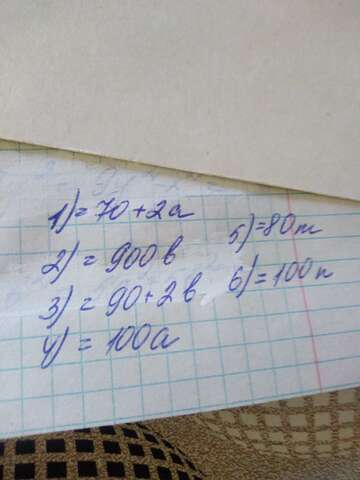 1) = 70 + 2а
2) = 900в
3) = 90 + 2в
4) = 100а
5) = 80m
6) = 100n